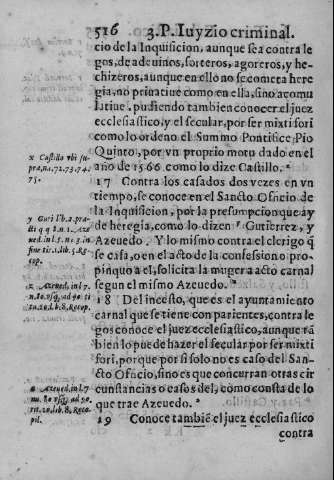 516 3. P. Iuyzio criminal.
cio de la Inquisicion, aunque sea contra le
gos, de adeuinos, sorteros, agoreros, y he-
chizeros, aunque en ello no se cometa here
gia, no priuatiue como en ella, sino acomu
latiue, pudiendo tambien conocer el juez
ecclesiastico, y el secular, por ser mixti fori
como lo ordeno el Summo Pontifice Pio
Quinto, por vn proprio motu dado en el
año de 1566. como lo dize Castillo. ˣ
x Castillo vbi su
pra, n. 72. 73. 74.
75.
17 Contra los casados dos vezes en vn
tiempo, se conoce en el Sancto Oficio de
la Inquisicion, por la presumpcion que ay
de heregia, como lo dizen ʸ Gutierrez, y
Azeuedo. Y lo mismo contra el clerigo q̃
se casa, o en el acto de la confessiono pro-
pinquo a el, solicita la muger a acto carnal
segun el mismo Azeuedo. ᶻ
y Guti lib. 2. pra-
cti q q 8. n. 1. Aze
ued. in l. 5. n. 3. in
fine tit. 1. lib. 5. Re-
cop.
z Azeued. in l. 7.
18 Del incesto, que es el ayuntamiento
carnal que se tiene con parientes, contra le
gos conoce el juez ecclesiastico, aunque tã
bien lo puede hazer el secular por ser mixti
fori, porque por si solo no es caso del San-
cto Oficio, sino es que concurran otras cir
cunstancias o casos del, como consta de lo
que trae Azeuedo. ª
a Azeued. in l. 7.
nu. 80 vsq; ad 90.
tit. 20. lib. 8. Reco
pil.
19 Conoce tambiẽ el juez ecclesiastico
contra